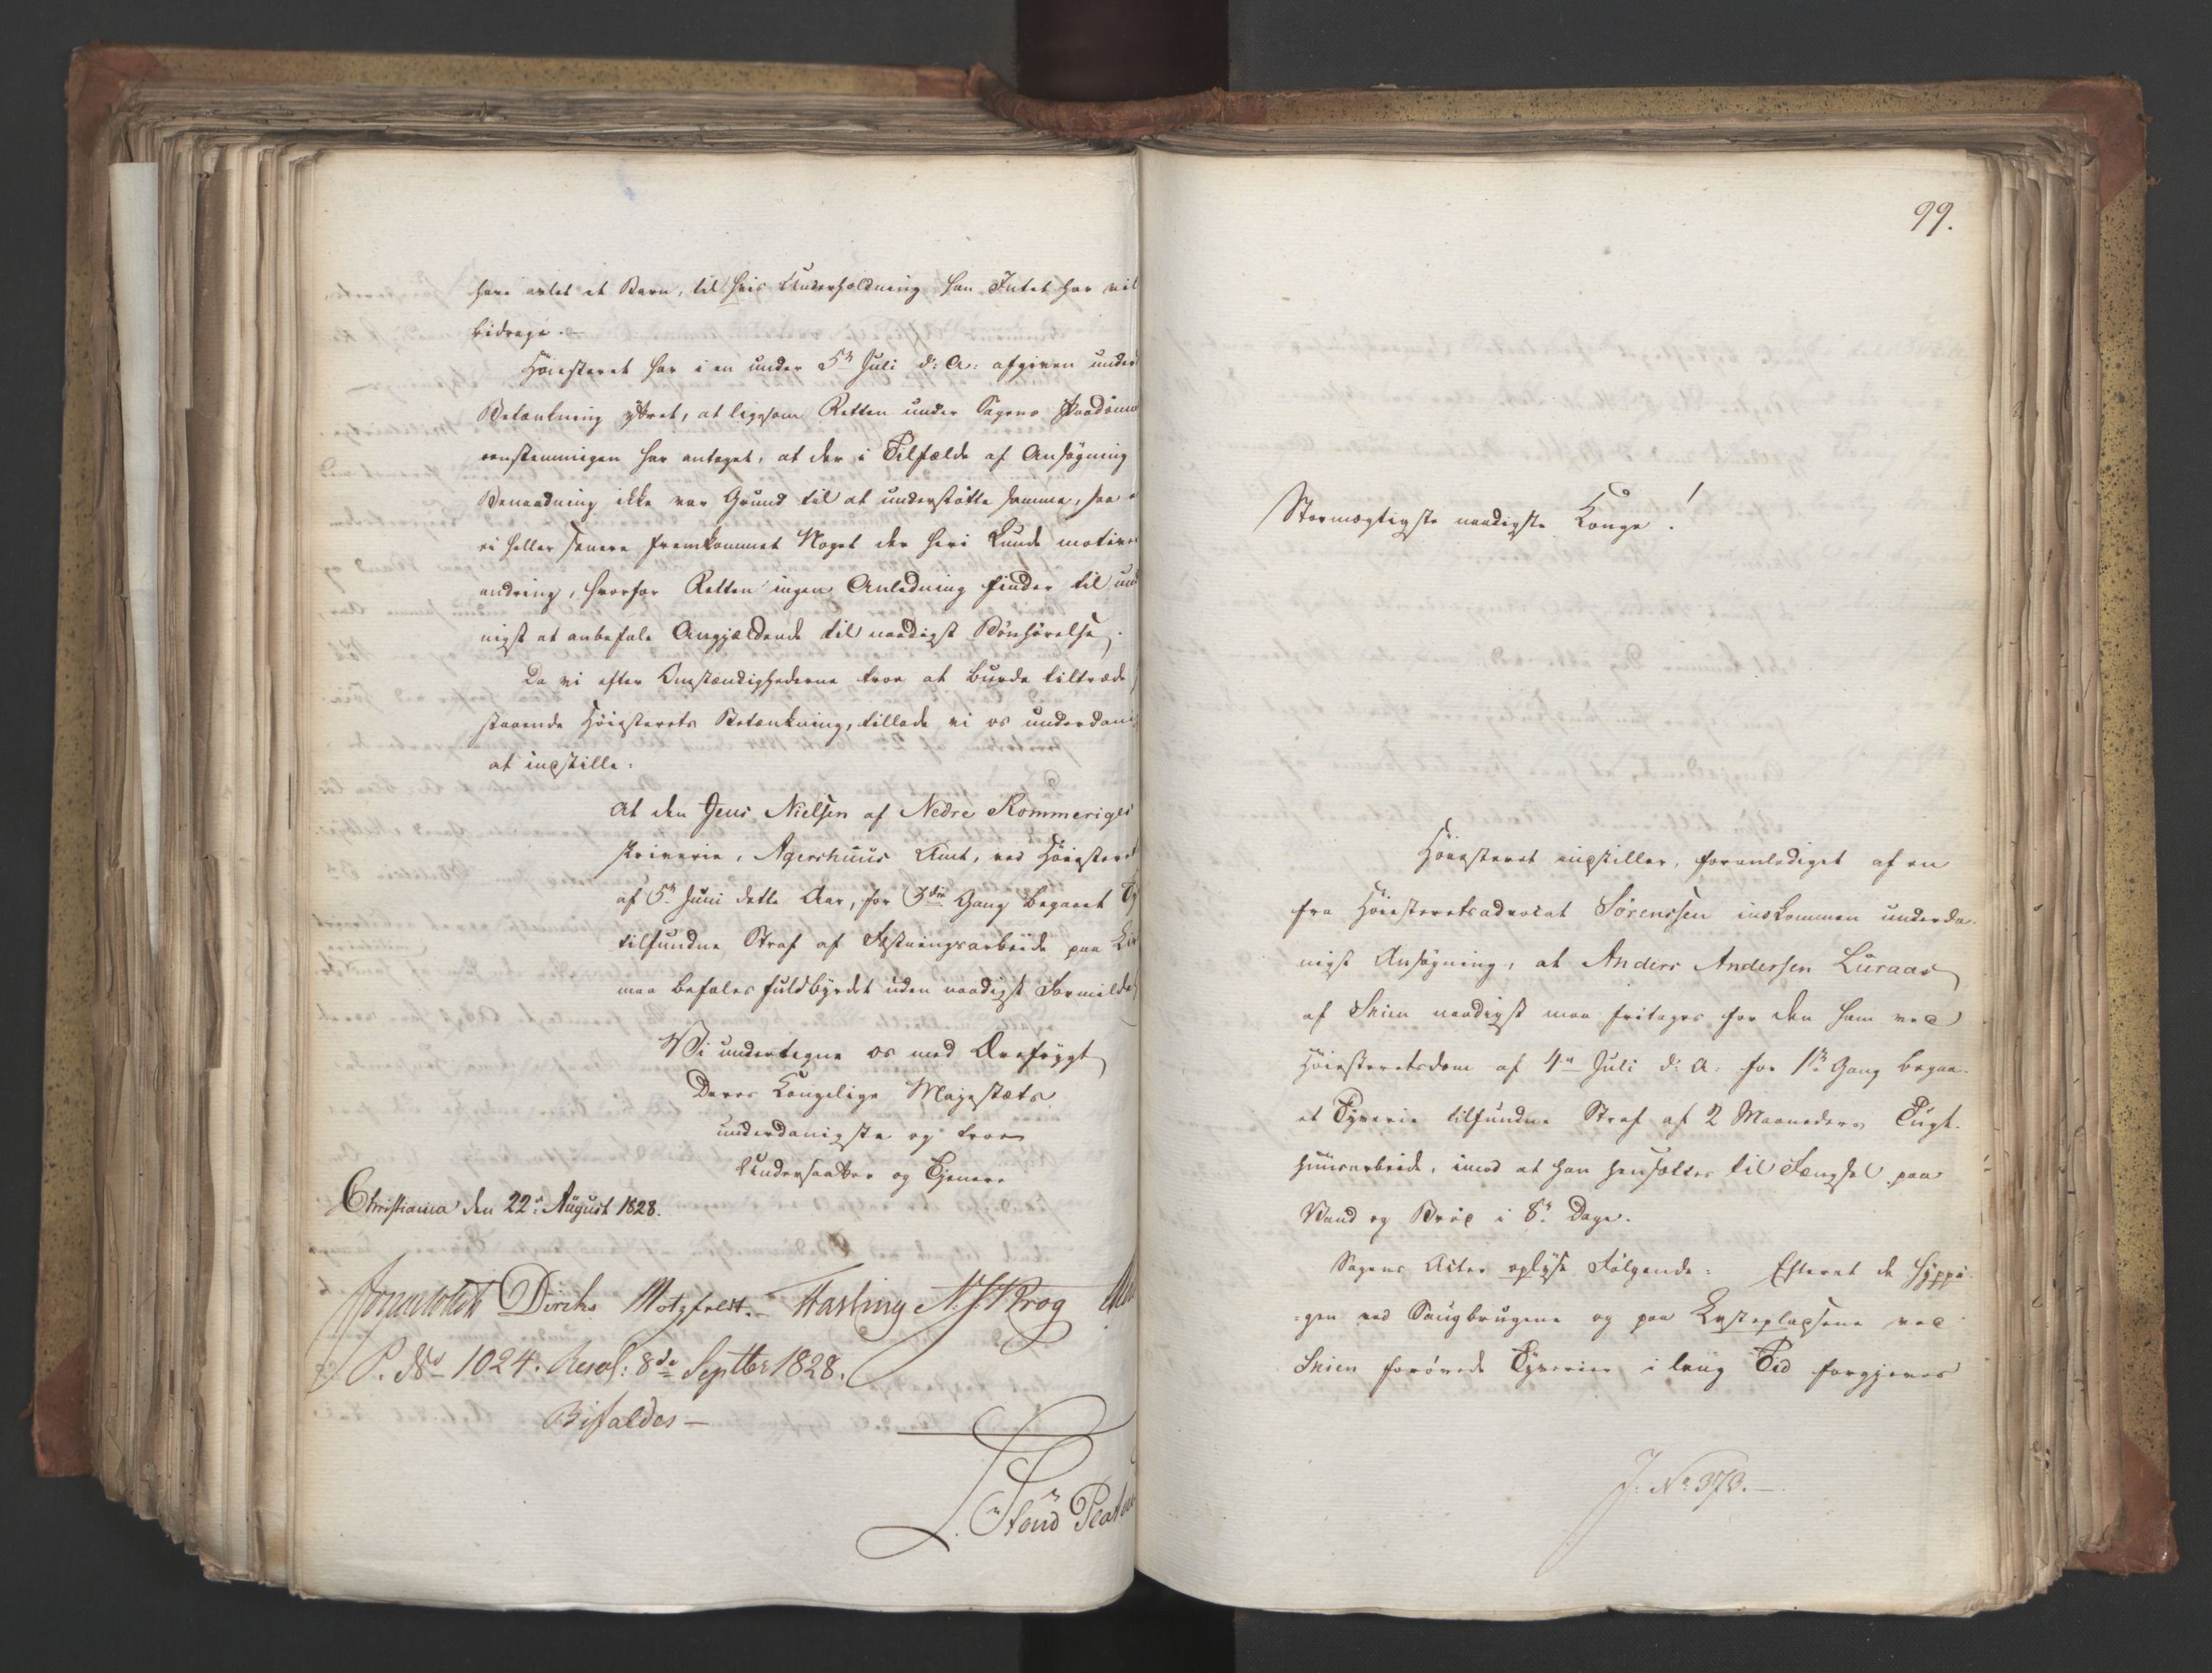 have avlet et Barn, til hvis Underholdning han Intet har vil
bidrage.—
Høiesteret har i en under 5te Juli d: A: afgiven under
Betænkning yttret, at ligesom Retten under Sagens Paadøm
eenstemmigen har antaget, at der i Tilfælde af Ansøgning
Benaadning ikke var Grund til at understøtte samme, saa
ei heller senere fremkommet Noget der heri kunde motive
andring, hvorfor Retten ingen Anledning finder til und
nigst at anbefale Angjældende til naadigst Bønhørelse.
Da vi efter Omstændighederne troe at burde tiltræde
staaende Høiesterets Betænkning, tillade vi os underdanig
at indstille:
At den Jens Nielsen af Nedre Rommeriges
skriverie, Agershuus Amt, ved Høiesteret
af 5te Juni dette Aar, for 3die Gang begaaet Ty
tilfundne Straf af Fæstningsarbeide paa Liv
maa befales fuldbyrdet uden naadigst Formilde
Vi undertegne os med Ærefrygt
Deres Kongelige Majestæts
underdanigste og troe
Undersaatter og Tjenere
Christiania den 22de August 1828.
Diriks Motzfeldt. Fasting N. J. Krog
P. No 1024. Resol: 8de Septbr 1828.
Bifaldes —
99.
Stormægtigste naadigste Konge!
Høiesteret indstiller, foranlediget af en
fra Høiesteretsadvocat Sørenssen indkommen underda-
nigst Ansøgning, at Anders Andersen Luraas
af Skien naadigst maa fritages for den ham ved
Høiesteretsdom af 4de Juli d: A: for 1ste Gang begaa-
et Tyverie tilfundne Straf af 2 Maaneders Tugt-
huusarbeide, imod at han hensættes til Fængsel paa
Vand og Brød i 8te Dage.
Sagens Acter oplyse Følgende: Efterat de hyppi-
-gen ved Saugbrugene og paa Lastepladsene ved
Skien forøvede Tyverier i lang Tid forgjeves
J. No 373.—